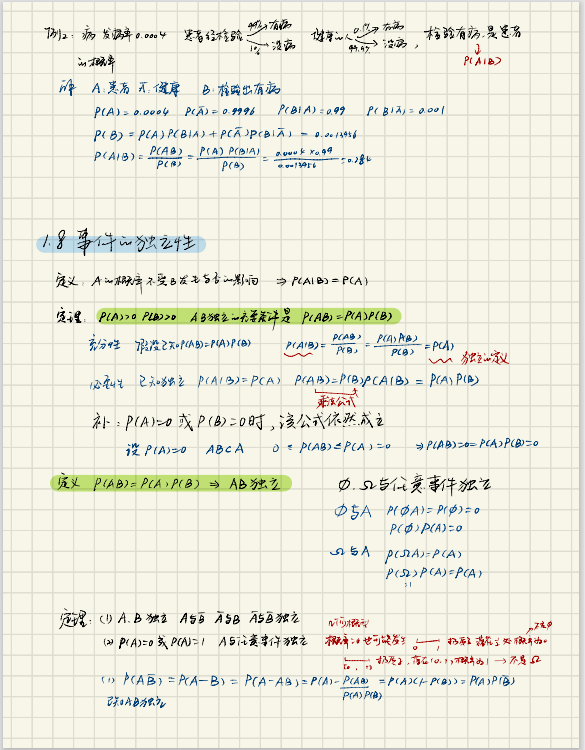 例2: 病 发病率0.0004 患者经检验 99% 有病 1% 没病 健康的人 0.1% 有病 99.9% 没病, 检验有病, 是患者
的概率
P(A|B)
解 A.患者 Ā.健康 B.检验出有病
P(A)=0.0004 P(Ā)=0.9996 P(B|A)=0.99 P(B|Ā)=0.001
P(B)=P(A)P(B|A)+P(Ā)P(B|Ā)=0.0013956
P(A|B)=P(AB)/P(B)=P(A)P(B|A)/P(B)=0.0004×0.99/0.0013956=0.284
1.8 事件的独立性
定义: A的概率不受B发生与否的影响 ⇒P(A|B)=P(A)
定理: P(A)>0 P(B)>0 AB独立的充要条件是 P(AB)=P(A)P(B)
充分性 假设已知P(AB)=P(A)P(B) P(A|B)=P(AB)/P(B)=P(A)P(B)/P(B)=P(A) 独立的定义
必要性 已知独立 P(A|B)=P(A) P(AB)=P(B)P(A|B)=P(A)P(B)
乘法公式
补: P(A)=0 或 P(B)=0时, 该公式依然成立
设P(A)=0 AB⊂A 0≤P(AB)≤P(A)=0 ⇒P(AB)=0=P(A)P(B)=0
定义 P(AB)=P(A)P(B) ⇒ AB独立
Φ.Ω与任意事件独立
Φ与A P(ΦA)=P(Φ)=0
P(Φ)P(A)=0
Ω与A P(ΩA)=P(A)
P(Ω)P(A)=P(A)
定理: (1) A.B独立 A与B̄ Ā与B Ā与B̄独立
(2) P(A)=0或P(A)=1 A与任意事件独立
几何概型 不是Φ
概率为0也可能发生 0 1 扔原子 落在 处概率为0
0 1 扔原子, 落在(0,1)概率为1 → 不是Ω
(1) P(AB̄)=P(A-B)=P(A-AB)=P(A)-P(AB)=P(A)(1-P(B))=P(A)P(B̄)
P(A)P(B)
已知AB独立